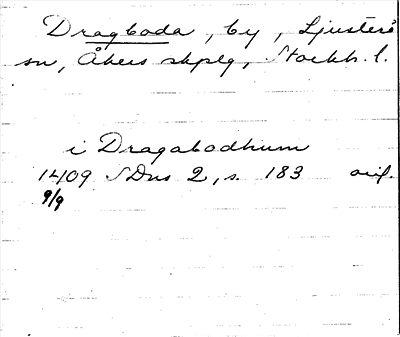 Dragboda, by, Ljusterö
sn, Åkers skplg, Stockh. l.
i Dragabodhum
1409 SDns 2, s. 183 orig.
9/9